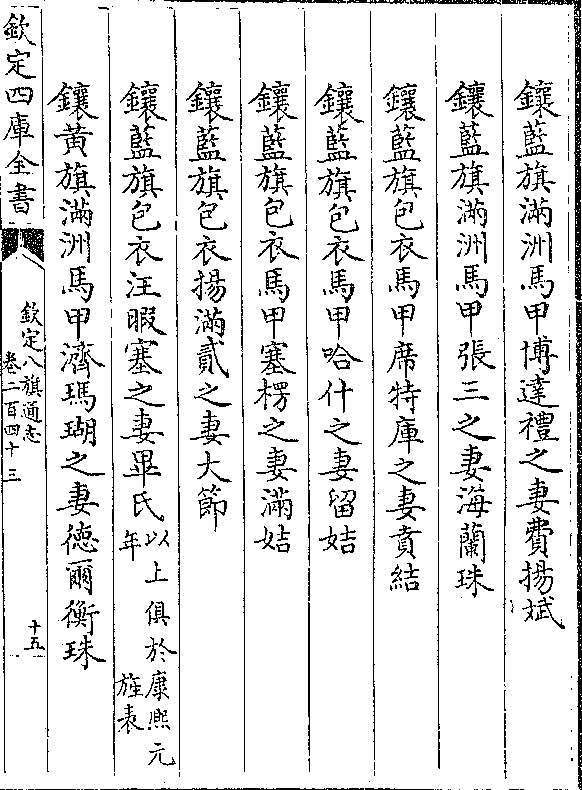 鑲藍旗滿洲馬甲博達禮之妻費揚斌
鑲藍旗滿洲馬甲張三之妻海蘭珠
鑲藍旗包衣馬甲席特庫之妻賁結
鑲藍旗包衣馬甲哈什之妻留姞
鑲藍旗包衣馬甲塞楞之妻滿姞
鑲藍旗包衣揚滿貳之妻大節
鑲藍旗包衣汪暇塞之妻畢氏以上俱於康熙元年旌表
鑲黄旗滿洲馬甲濟瑪瑚之妻德爾衡珠
欽定四庫全書
欽定八旗通志
卷二百四十三
十五